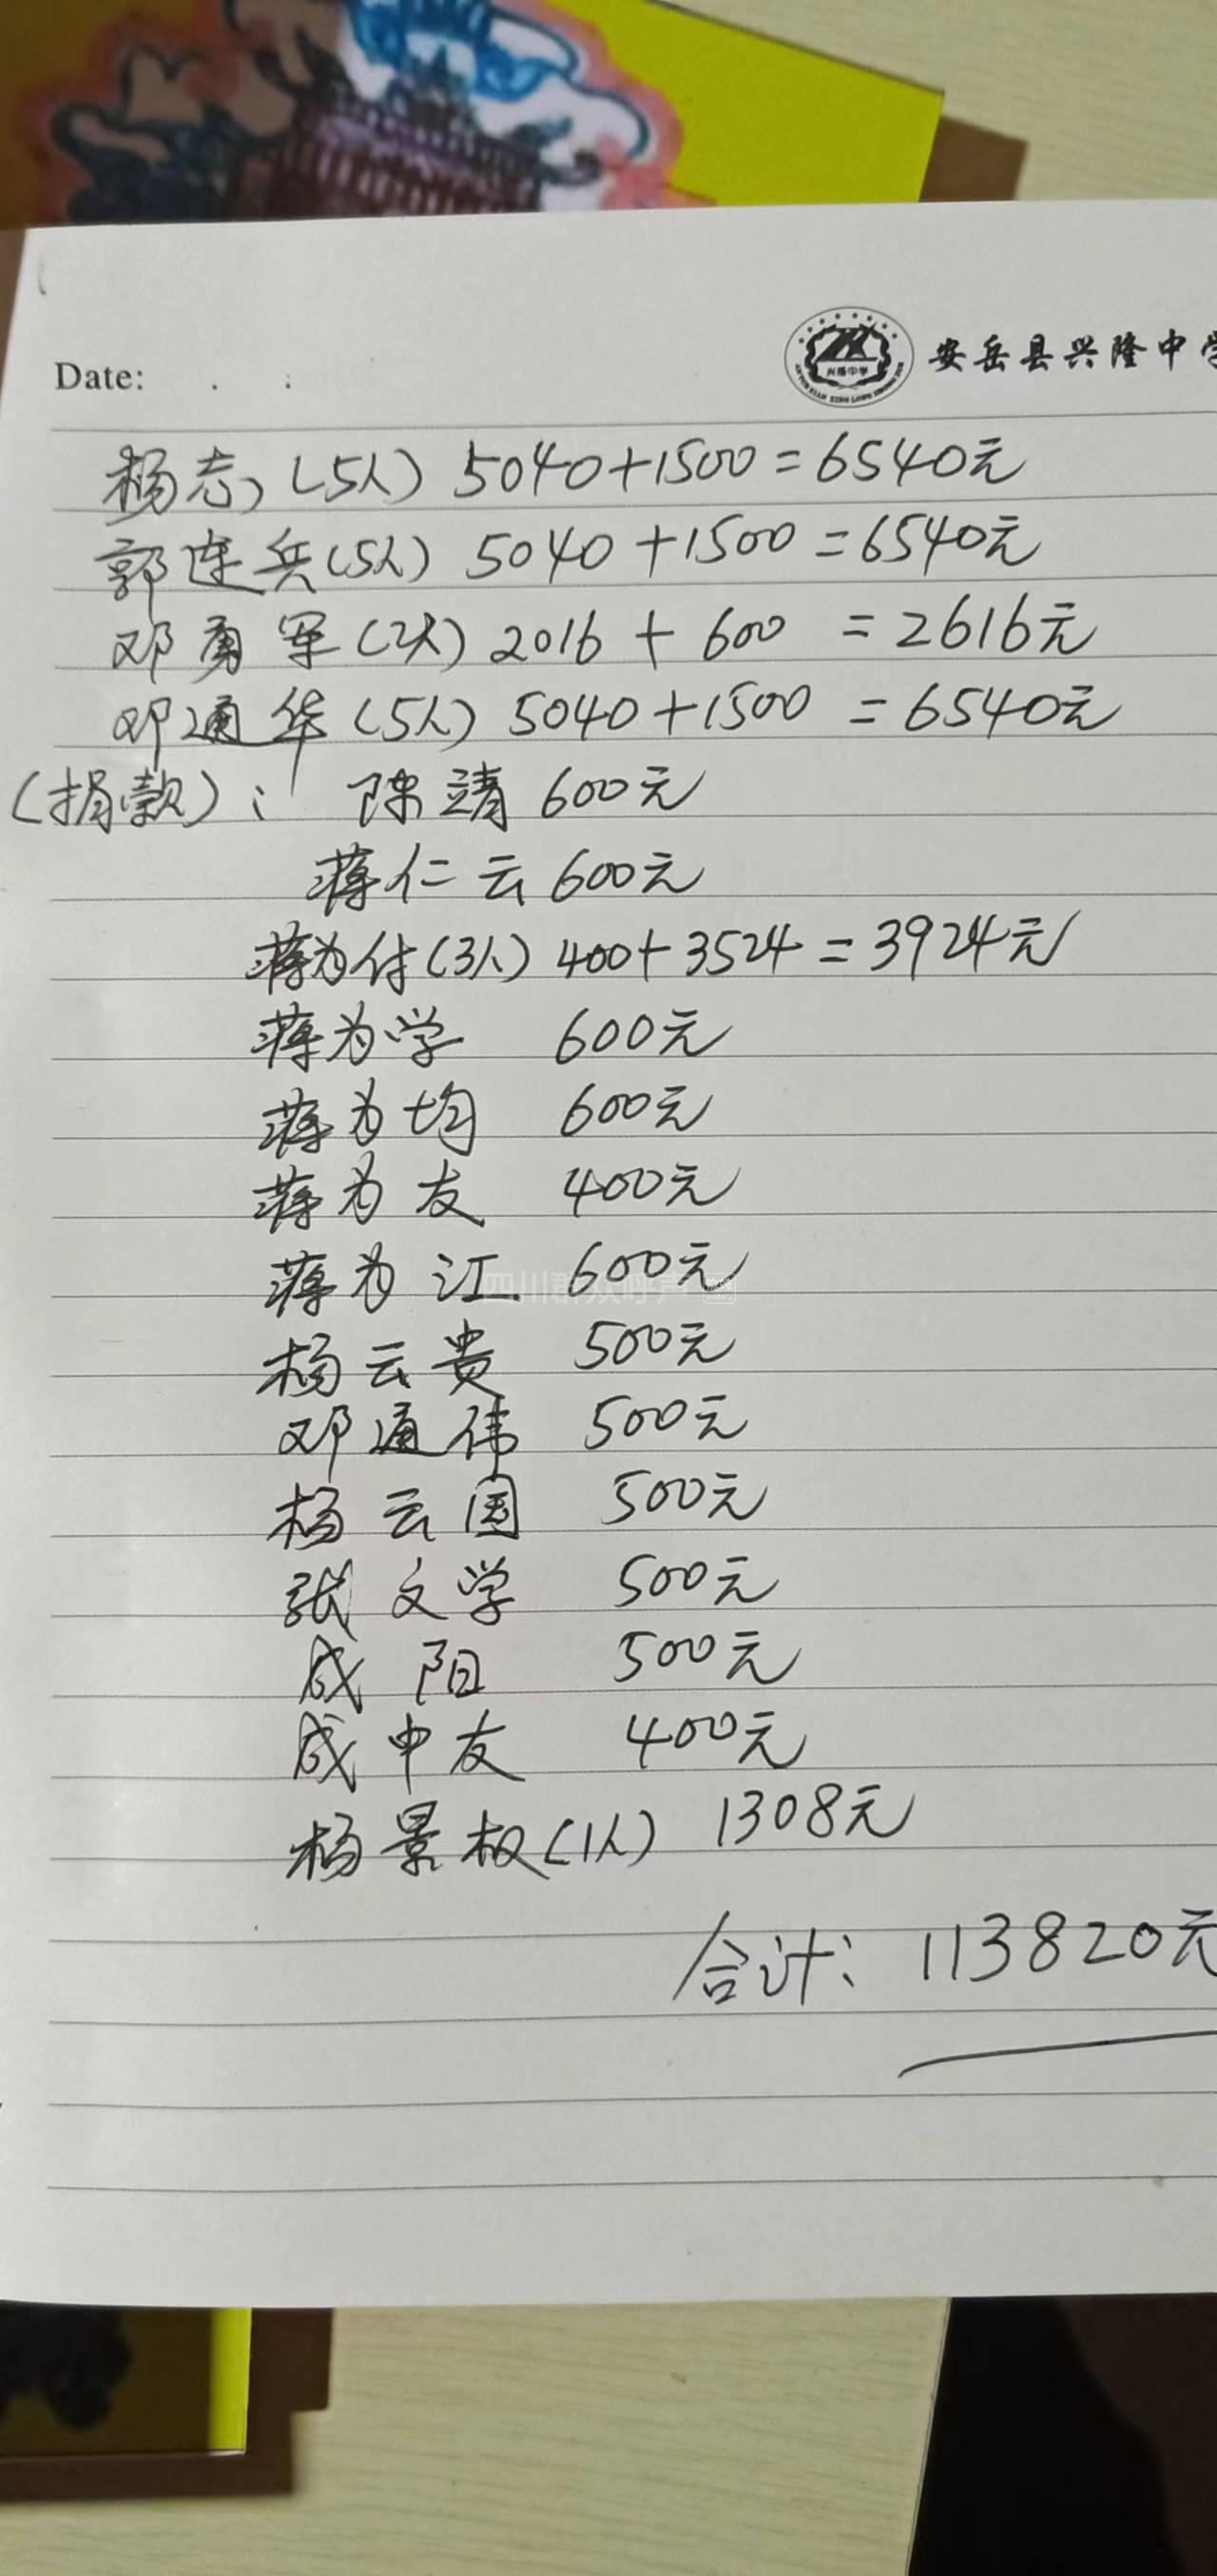 Date: . :
安岳县兴隆中学
兴隆中学
杨志(5人) 5040+1500=6540元
郭连兵(5人) 5040+1500=6540元
邓勇军(2人) 2016+600=2616元
邓通华(5人) 5040+1500=6540元
(捐款): 陈靖 600元
蒋仁云 600元
蒋为付(3人) 400+3524=3924元
蒋为学 600元
蒋为均 600元
蒋为友 400元
蒋为江 600元
四川群众呼声
杨云贵 500元
邓通伟 500元
杨云国 500元
张文学 500元
成阳 500元
成中友 400元
杨景权(1人) 1308元
合计: 113820元